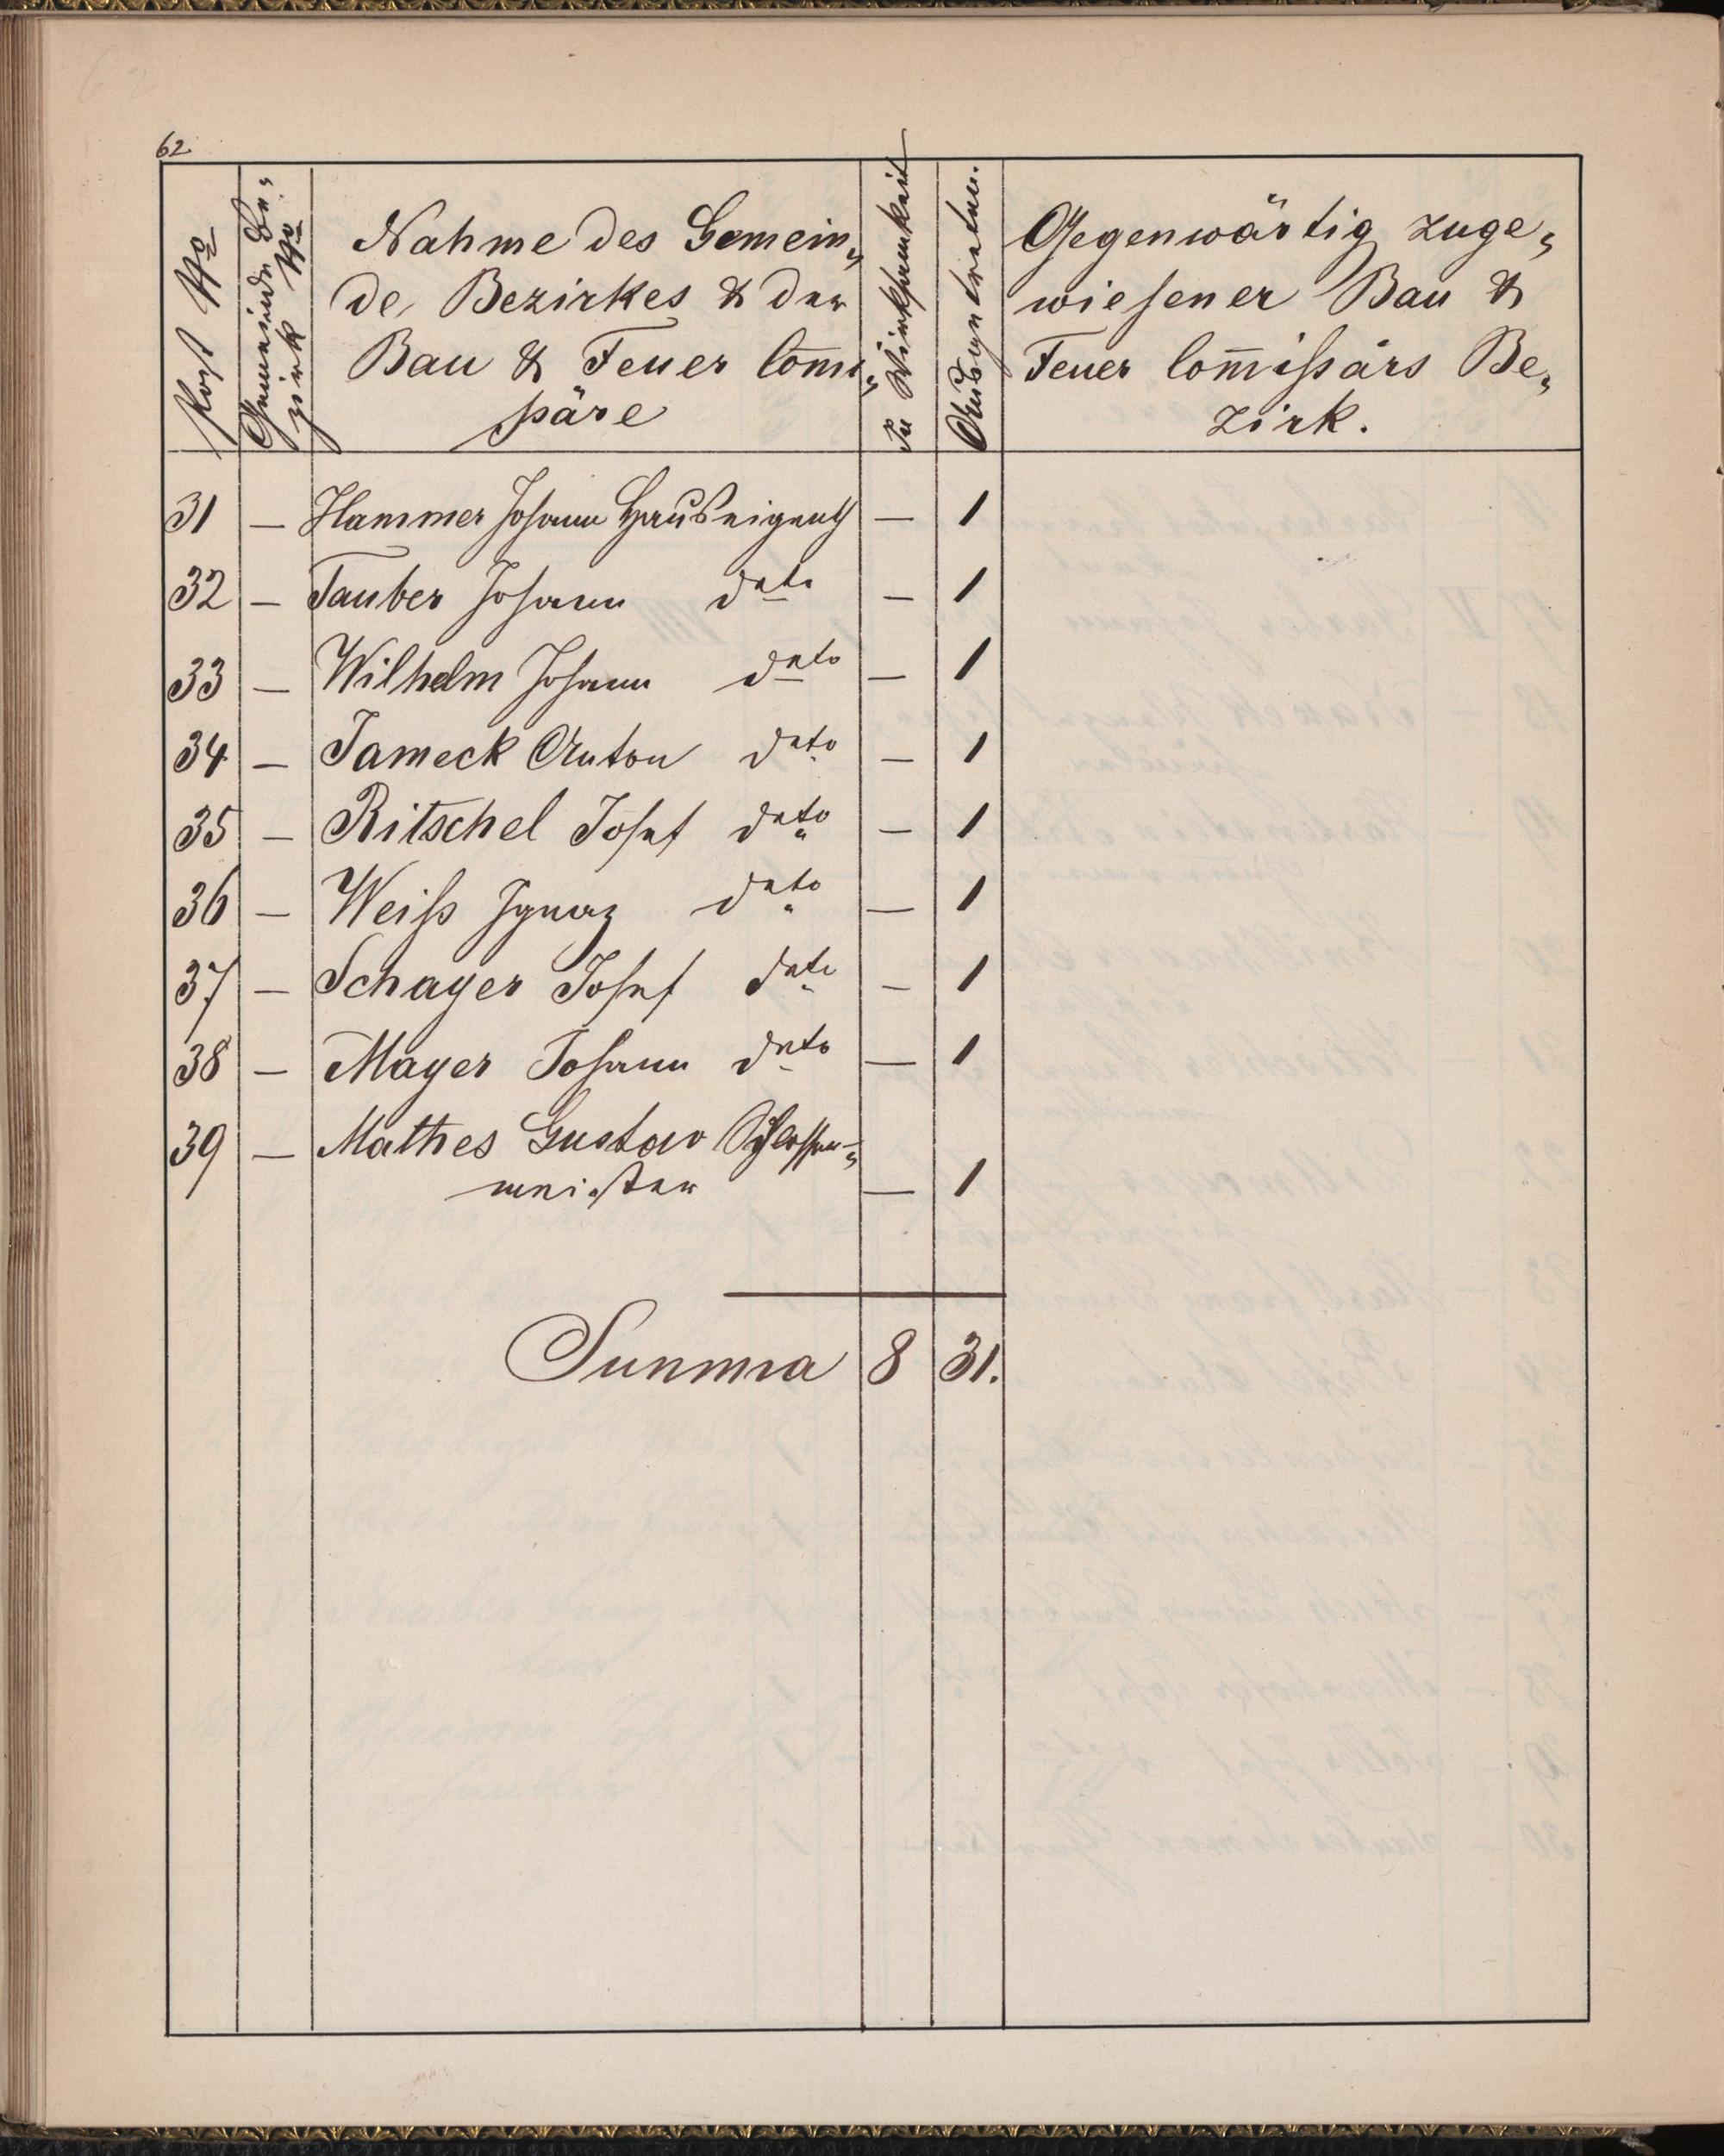 62
Post No
Gemeinde Be„
zirk No
Nahme des Gemein„
de, Bezirkes & der
Bau & Feuer Com̄i„
ßäre
In Wirksamkeit
Ausgetreten.
Gegenwärtig zuge„
wiesener Bau &
Feuer Com̄ißärs Be„
zirk.
31 — Hammer Johann Hauseigenth — 1
32 — Tauber Johann dato — 1
33 — Wilhelm Johann dato — 1
34 — Jameck Anton dato — 1
35 — Ritschel Josef dato — 1
36 — Weiß Ignaz dato — 1
37 — Schayer Josef dato — 1
38 — Mayer Johann dato — 1
39 — Mathes Gustav Schlosser„
meister — 1
Summa 8 31.